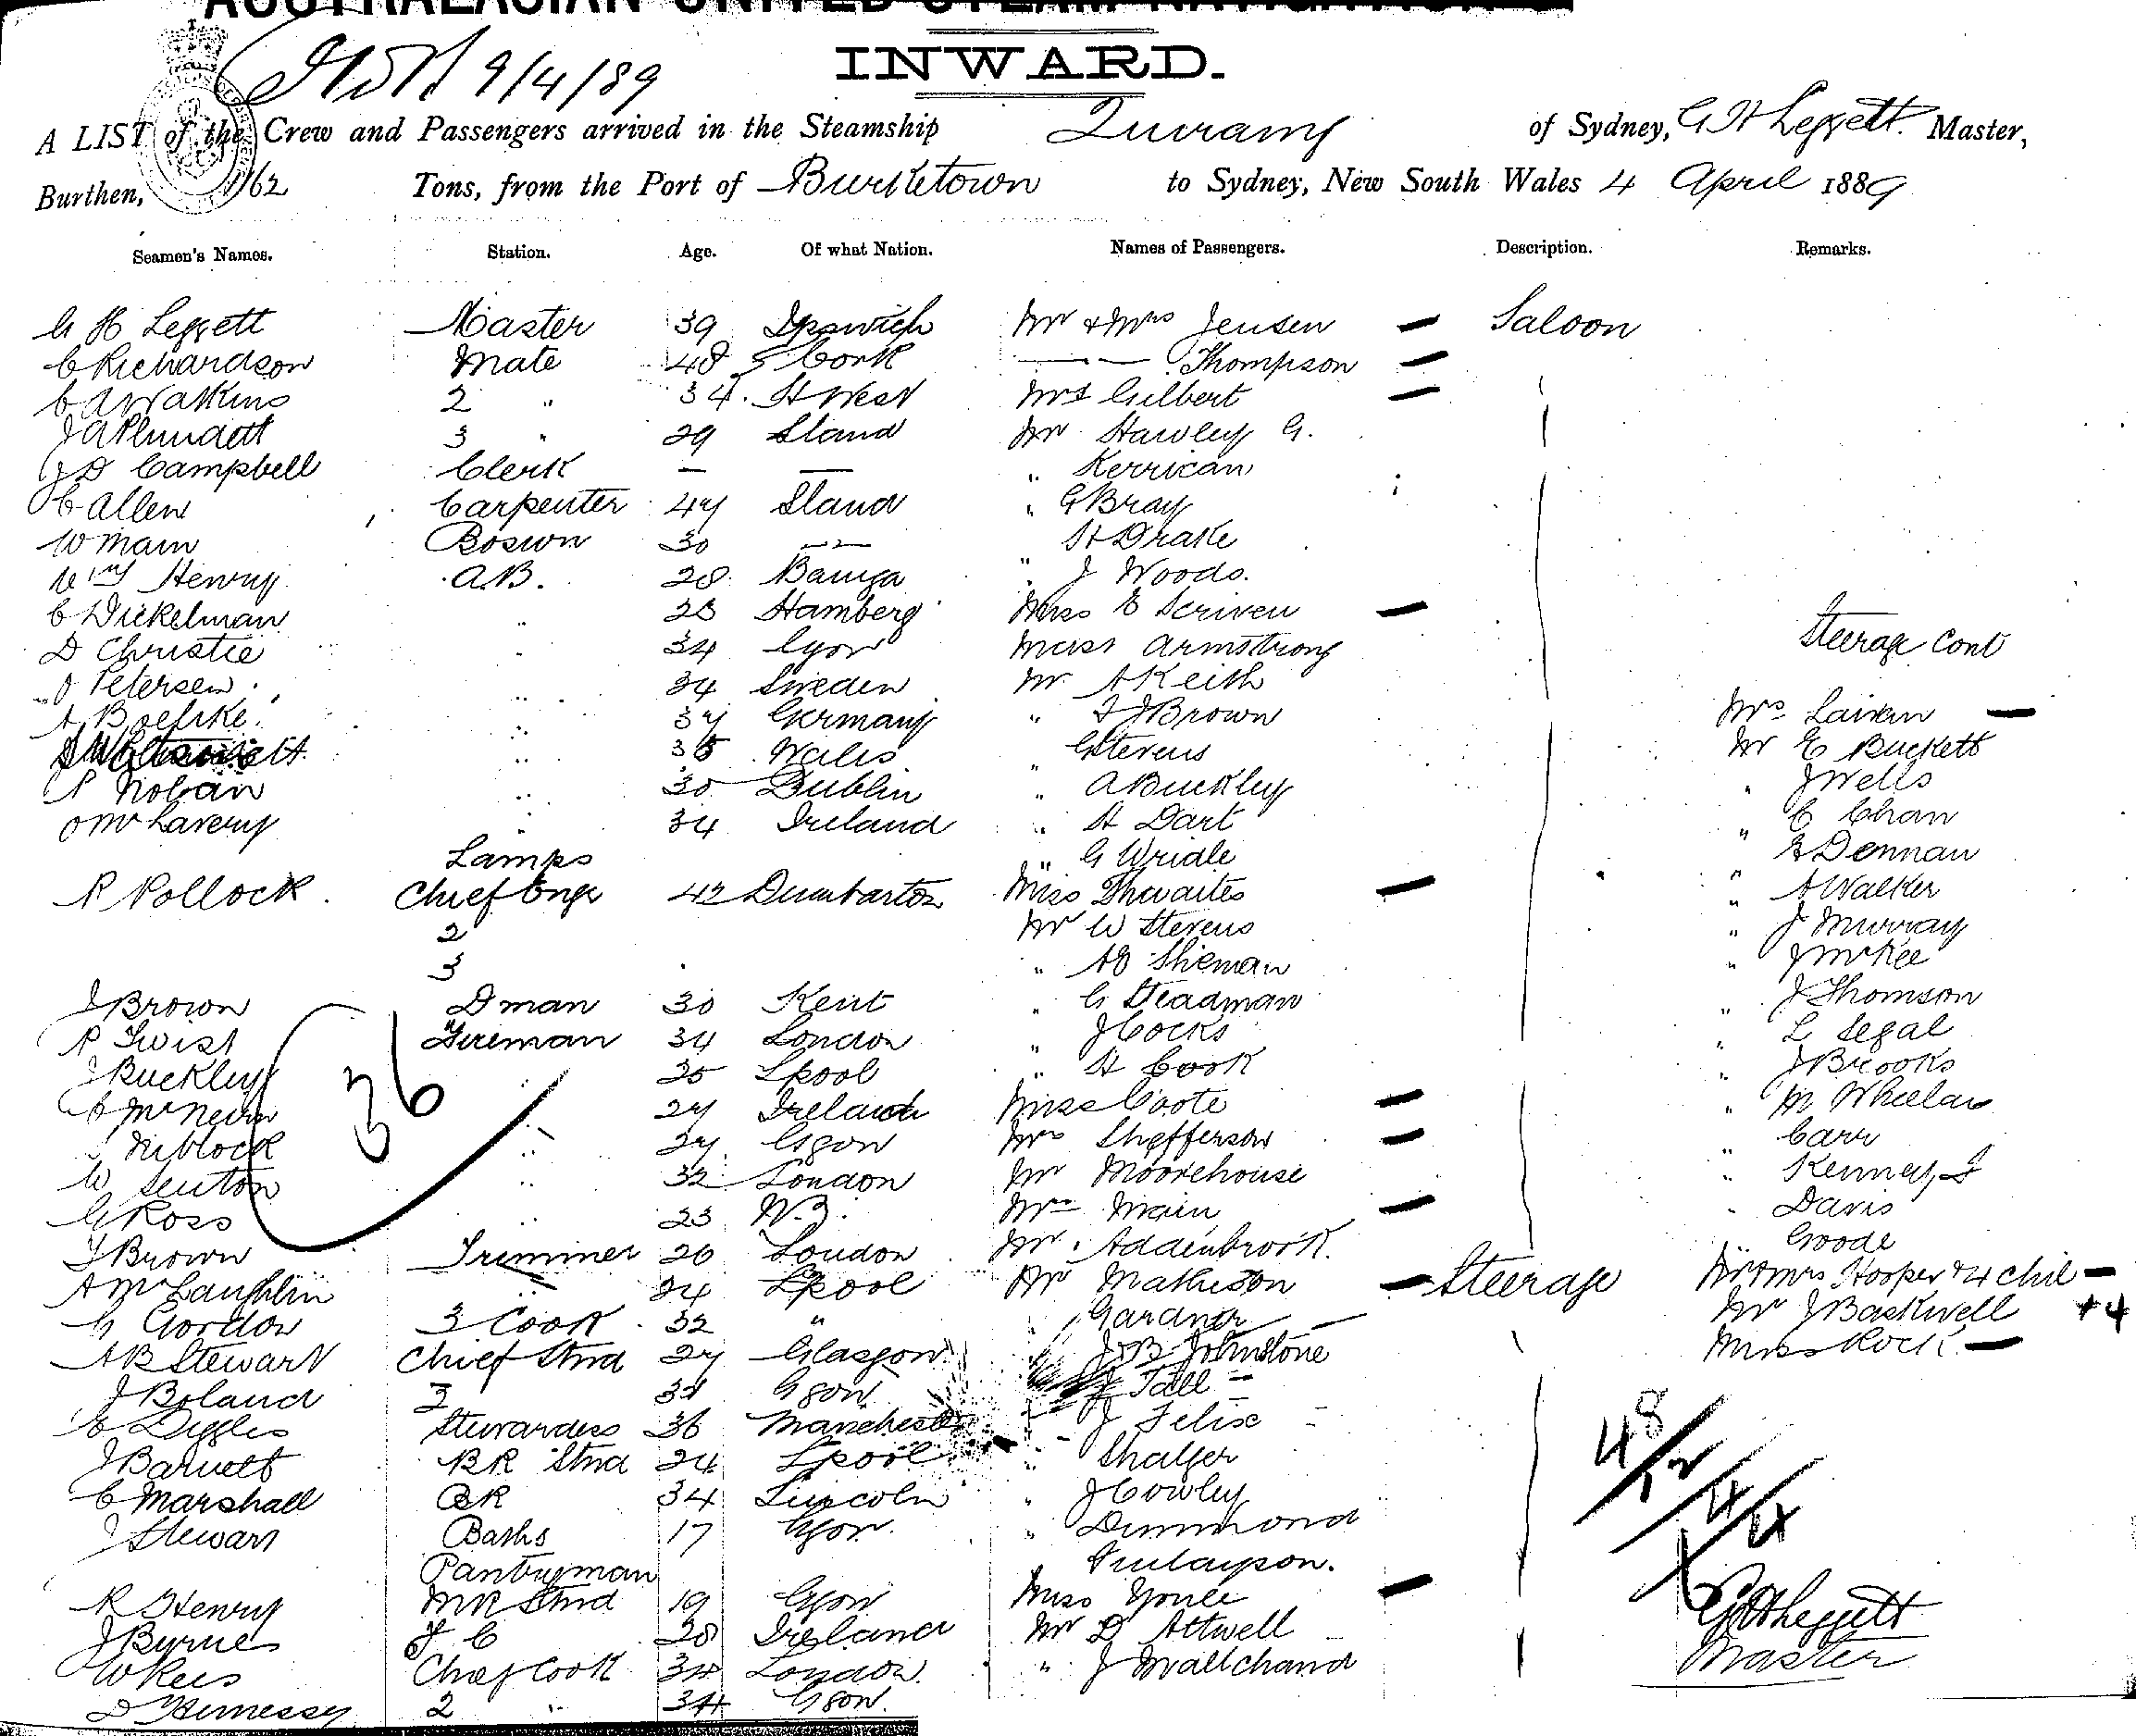 AUSTRALASIAN UNITED STEAM NAVIGATION
9/4/89
INWARD.
A LIST of the Crew and Passengers arrived in the Steamship of Sydney, G H Leggett. Master,
Burthen, Tons, from the Port of Burketown to Sydney, New South Wales 4 April 1889
Seamen's Names. Station. Age. Of what Nation. Names of Passengers. Description. Remarks.
G H Leggett Master 39 Ipswich Mr & Mrs Jensen — Saloon
C Richardson Mate 48 Cork —— Thompson —
C A Watkins 2 " 34. Mrs Gilbert —
3 " 29 Sland Mr Hawley G.
J D Campbell Clerk — — " Kerrican
C Allen Carpenter 47 Sland " G Bray
W Main Boswn 30 —"— " H Drake
Wm Henry A.B. 28 " J Woods.
C Dickelman " 28 Hamberg Miss E Scriven —
D Christie " 34 Ggow Miss Armstrong
Steerage Cont
J Petersen " 34 Sweden Mr A Keith
A Boefike " 37 Germany " J J Brown
Mrs —
" 35 Wales " G Stevens
Mr E Buckett
P Nolan " 30 Dublin " A Buckley
" J Wells
O McLavery " 34 Ireland " H Dart
" C Chan
Lamps " G Wridle
" E Dennan
R Pollock Chief Engr 42 Dumbarton Miss Thwaites —
" A Walker
2 Mr W Stevens
" J Murray
3 " A E Sheman
" J McKee
J Brown D man 30 Kent " G Steadman
" J Thomson
R Twist Fireman 34 London " J Cocks
" L Segal
J Buckley " 35 Lpool " H Cook
" J Brooks
C McNevin " 27 Ireland Miss Coote —
" M Whelan
Niblock " 27 Ggow Mrs Shefferson —
" Carr
W Senton " 32 London Mr Moorehouse
" Kenney, J
G Ross " 23 N.Z. Mrs Main —
" Davis
J Brown Trimmer 26 London Mr Addenbrook.
Goode
A McLaughlin " 24 Lpool Mr Matheson — Steerage
Mr & Mrs Hooper & 4 chil —
G Gordon 3 Cook 32 " " Gardner —
Mr J Backwell +4
A B Stewart Chief Stwd 27 Glasgow " J B Johnstone
Miss Rock. —
36
J Boland 2 Ggow " J Tall
E Diggles Stewardess 36 Manchester " J Felix
J Barnett B R Stwd 24 Lpool " Shalfer
C Marshall BR 34 Lincoln " J Cowley
48/12/4/4
J Stewart Baths 17 Ggow " Dummond
Pantryman Finlayson.
R Henry MR Stwd 19 Ggow Miss Youle —
G H Leggett
J Byrne F C 28 Ireland Mr D Attwell
Master
W Rees Chief Cook 34 London " J Mallchand
D Hennessy 2 " 34 Ggow